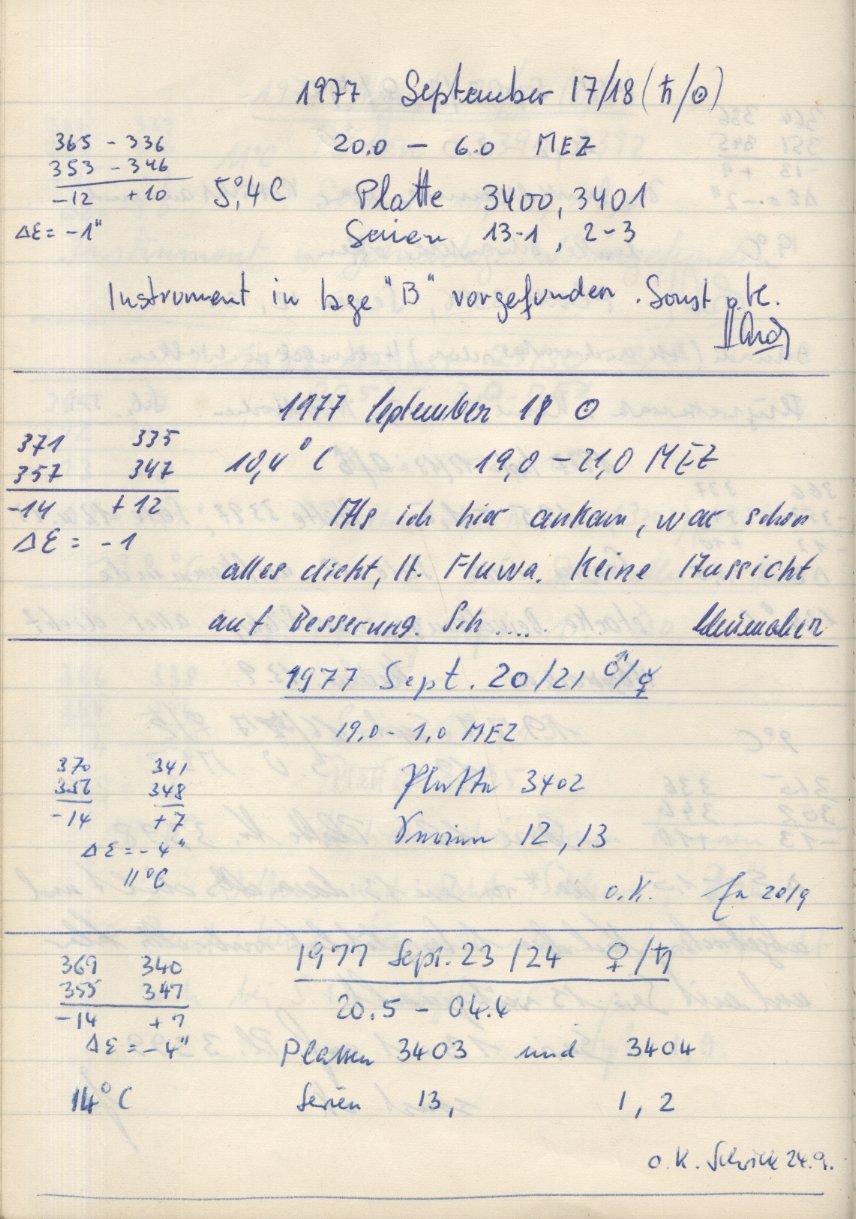 1977 September 17/18 (♄/☉)
365 - 336 20.0 — 6.0 MEZ
353 - 346
-12 +10 5,°4 C Platte 3400, 3401
ΔE = -1" Serien 13-1, 2-3
Instrument in Lage "B" vorgefunden. Sonst o.k.
1977 September 18 ☉
371 335
357 347 10,4° C 19,0 - 21,0 MEZ
-14 +12 Als ich hier ankam, war schon
ΔE = -1
alles dicht, lt. Fluwa. Keine Aussicht
auf Besserung. Sch.....
1977 Sept. 20/21 ♂/☿
19,0 - 1,0 MEZ
370 341 Platte 3402
356 348
-14 +7 Serien 12, 13
ΔE = -4"
11°C
o.K.
369 340 1977 Sept. 23/24 ♀/♄
355 347
-14 +7 20.5 - 04.4
ΔE = -4" Platten 3403 und 3404
14°C Serien 13, 1, 2
o.K. 24.9.